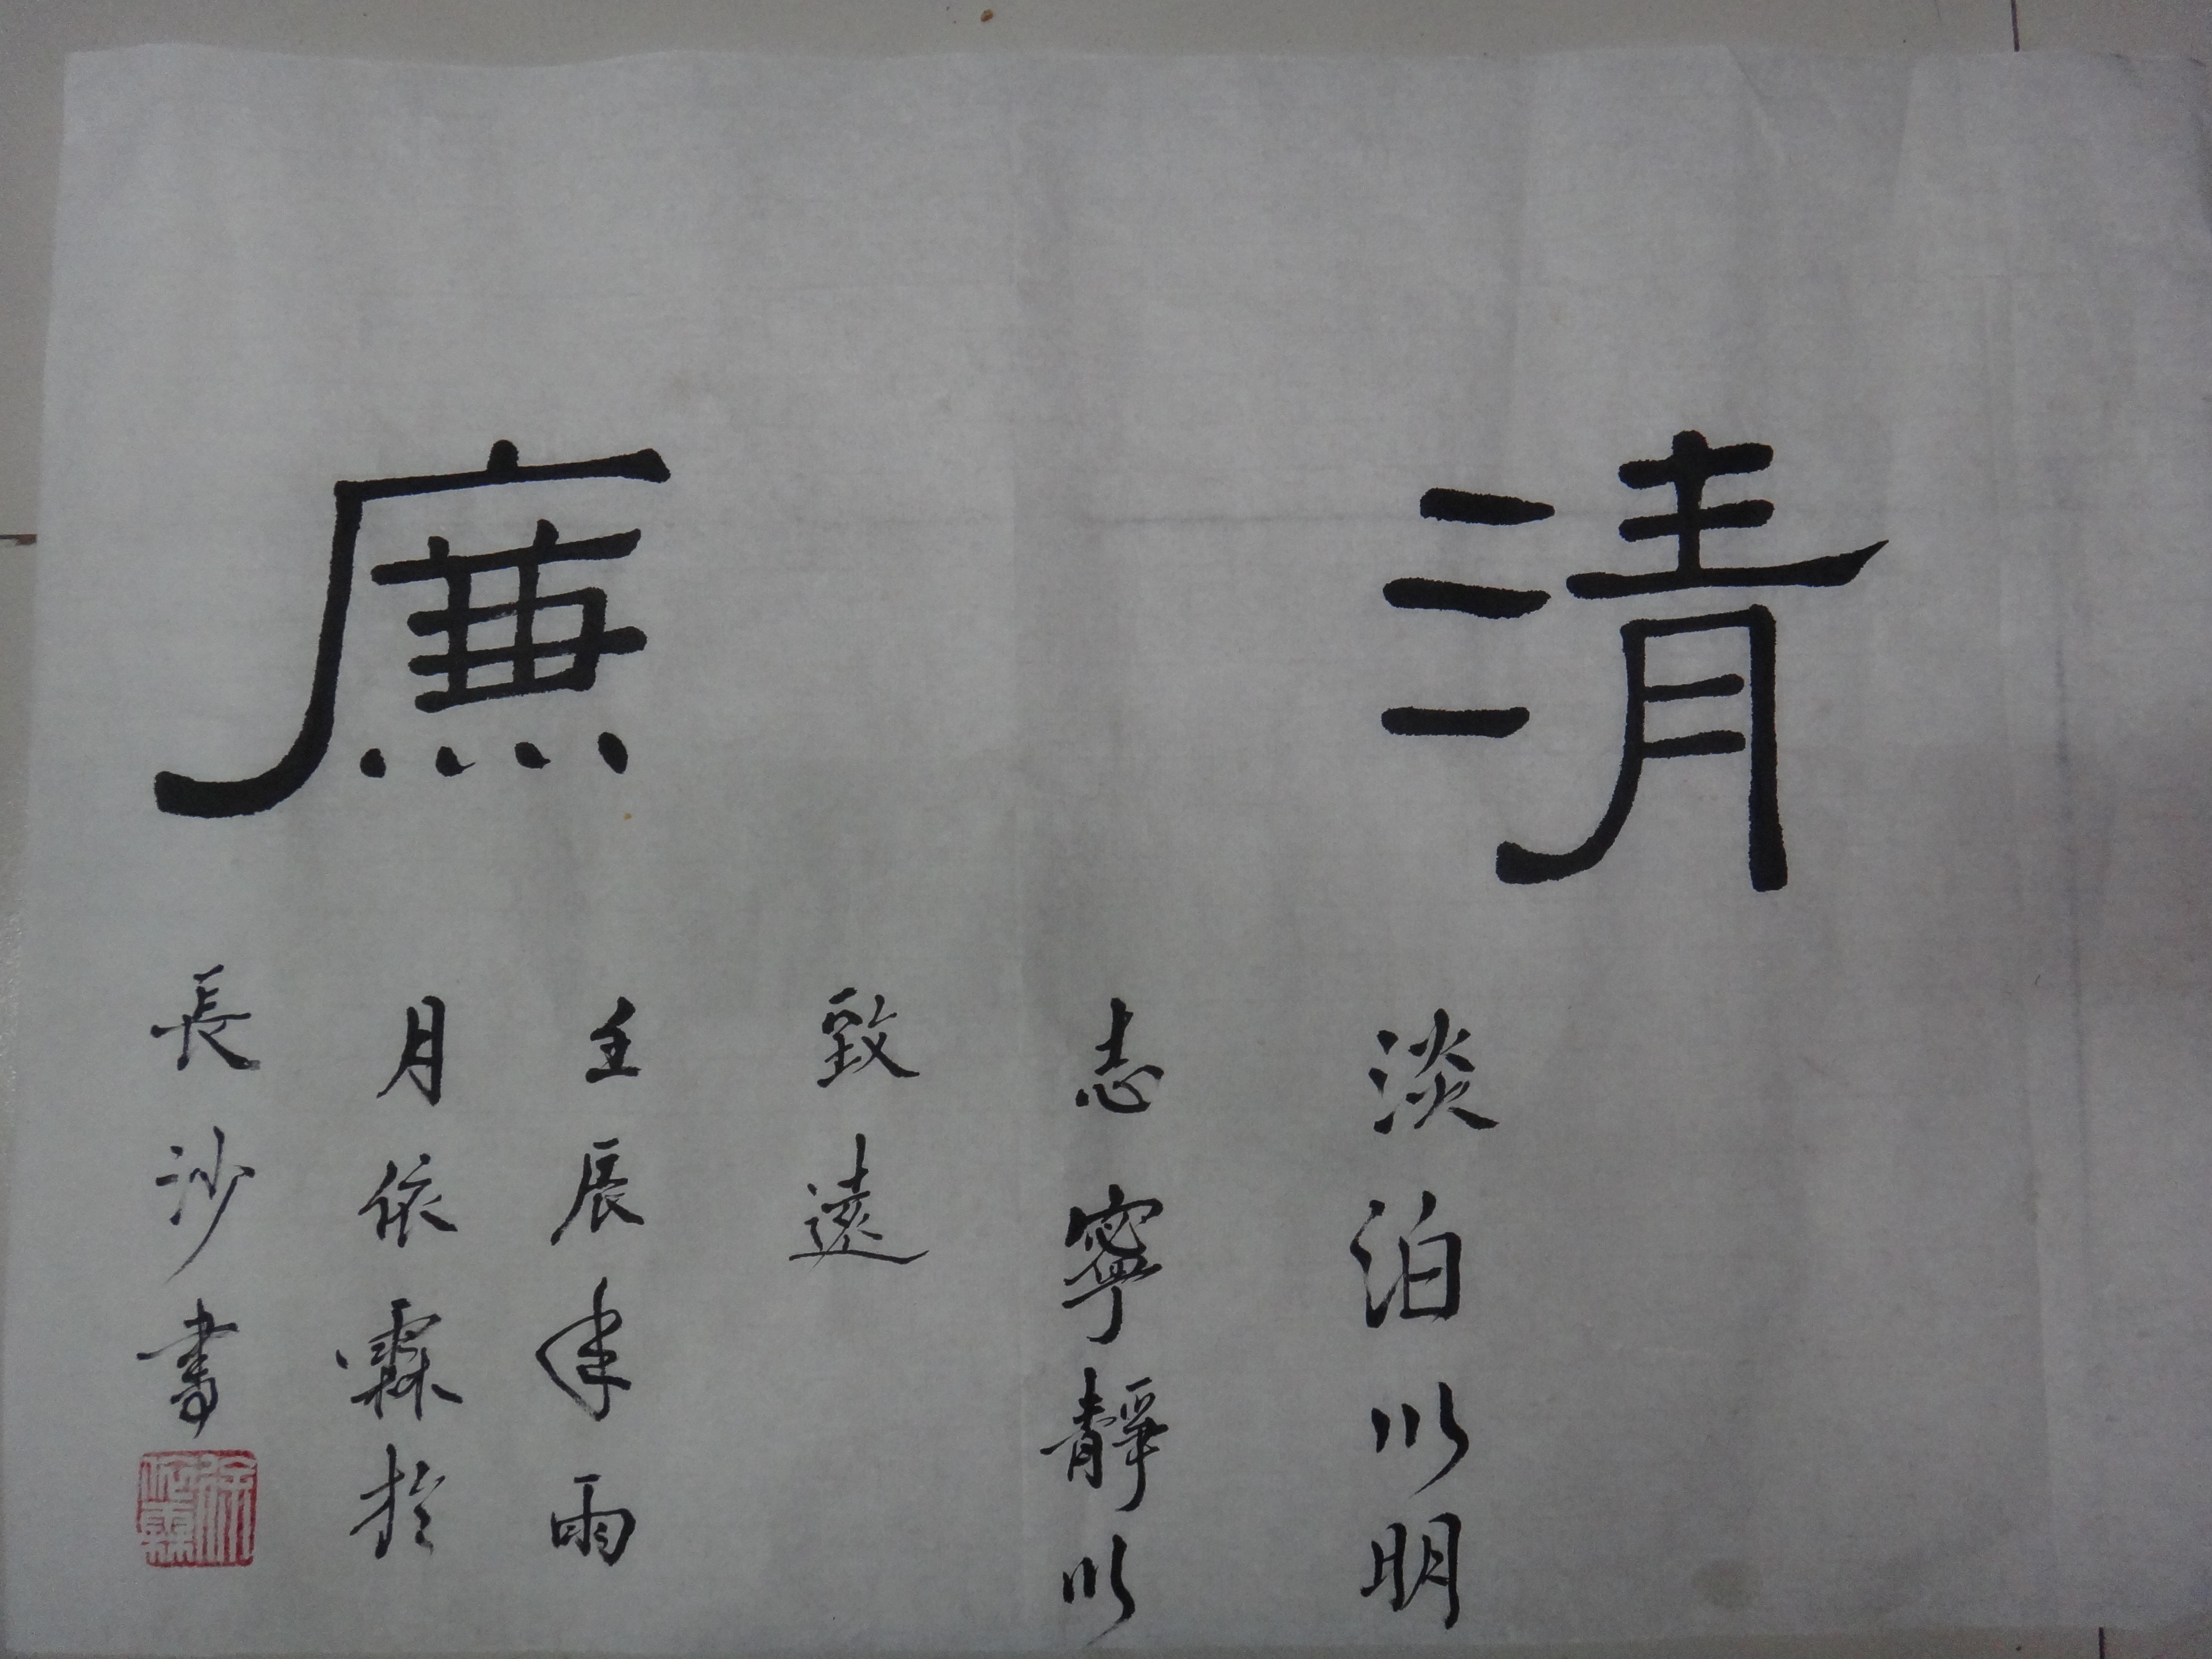 清廉
淡泊以明
志寧靜以
致遠
壬辰年雨
月依霖於
長沙書
徐依霖